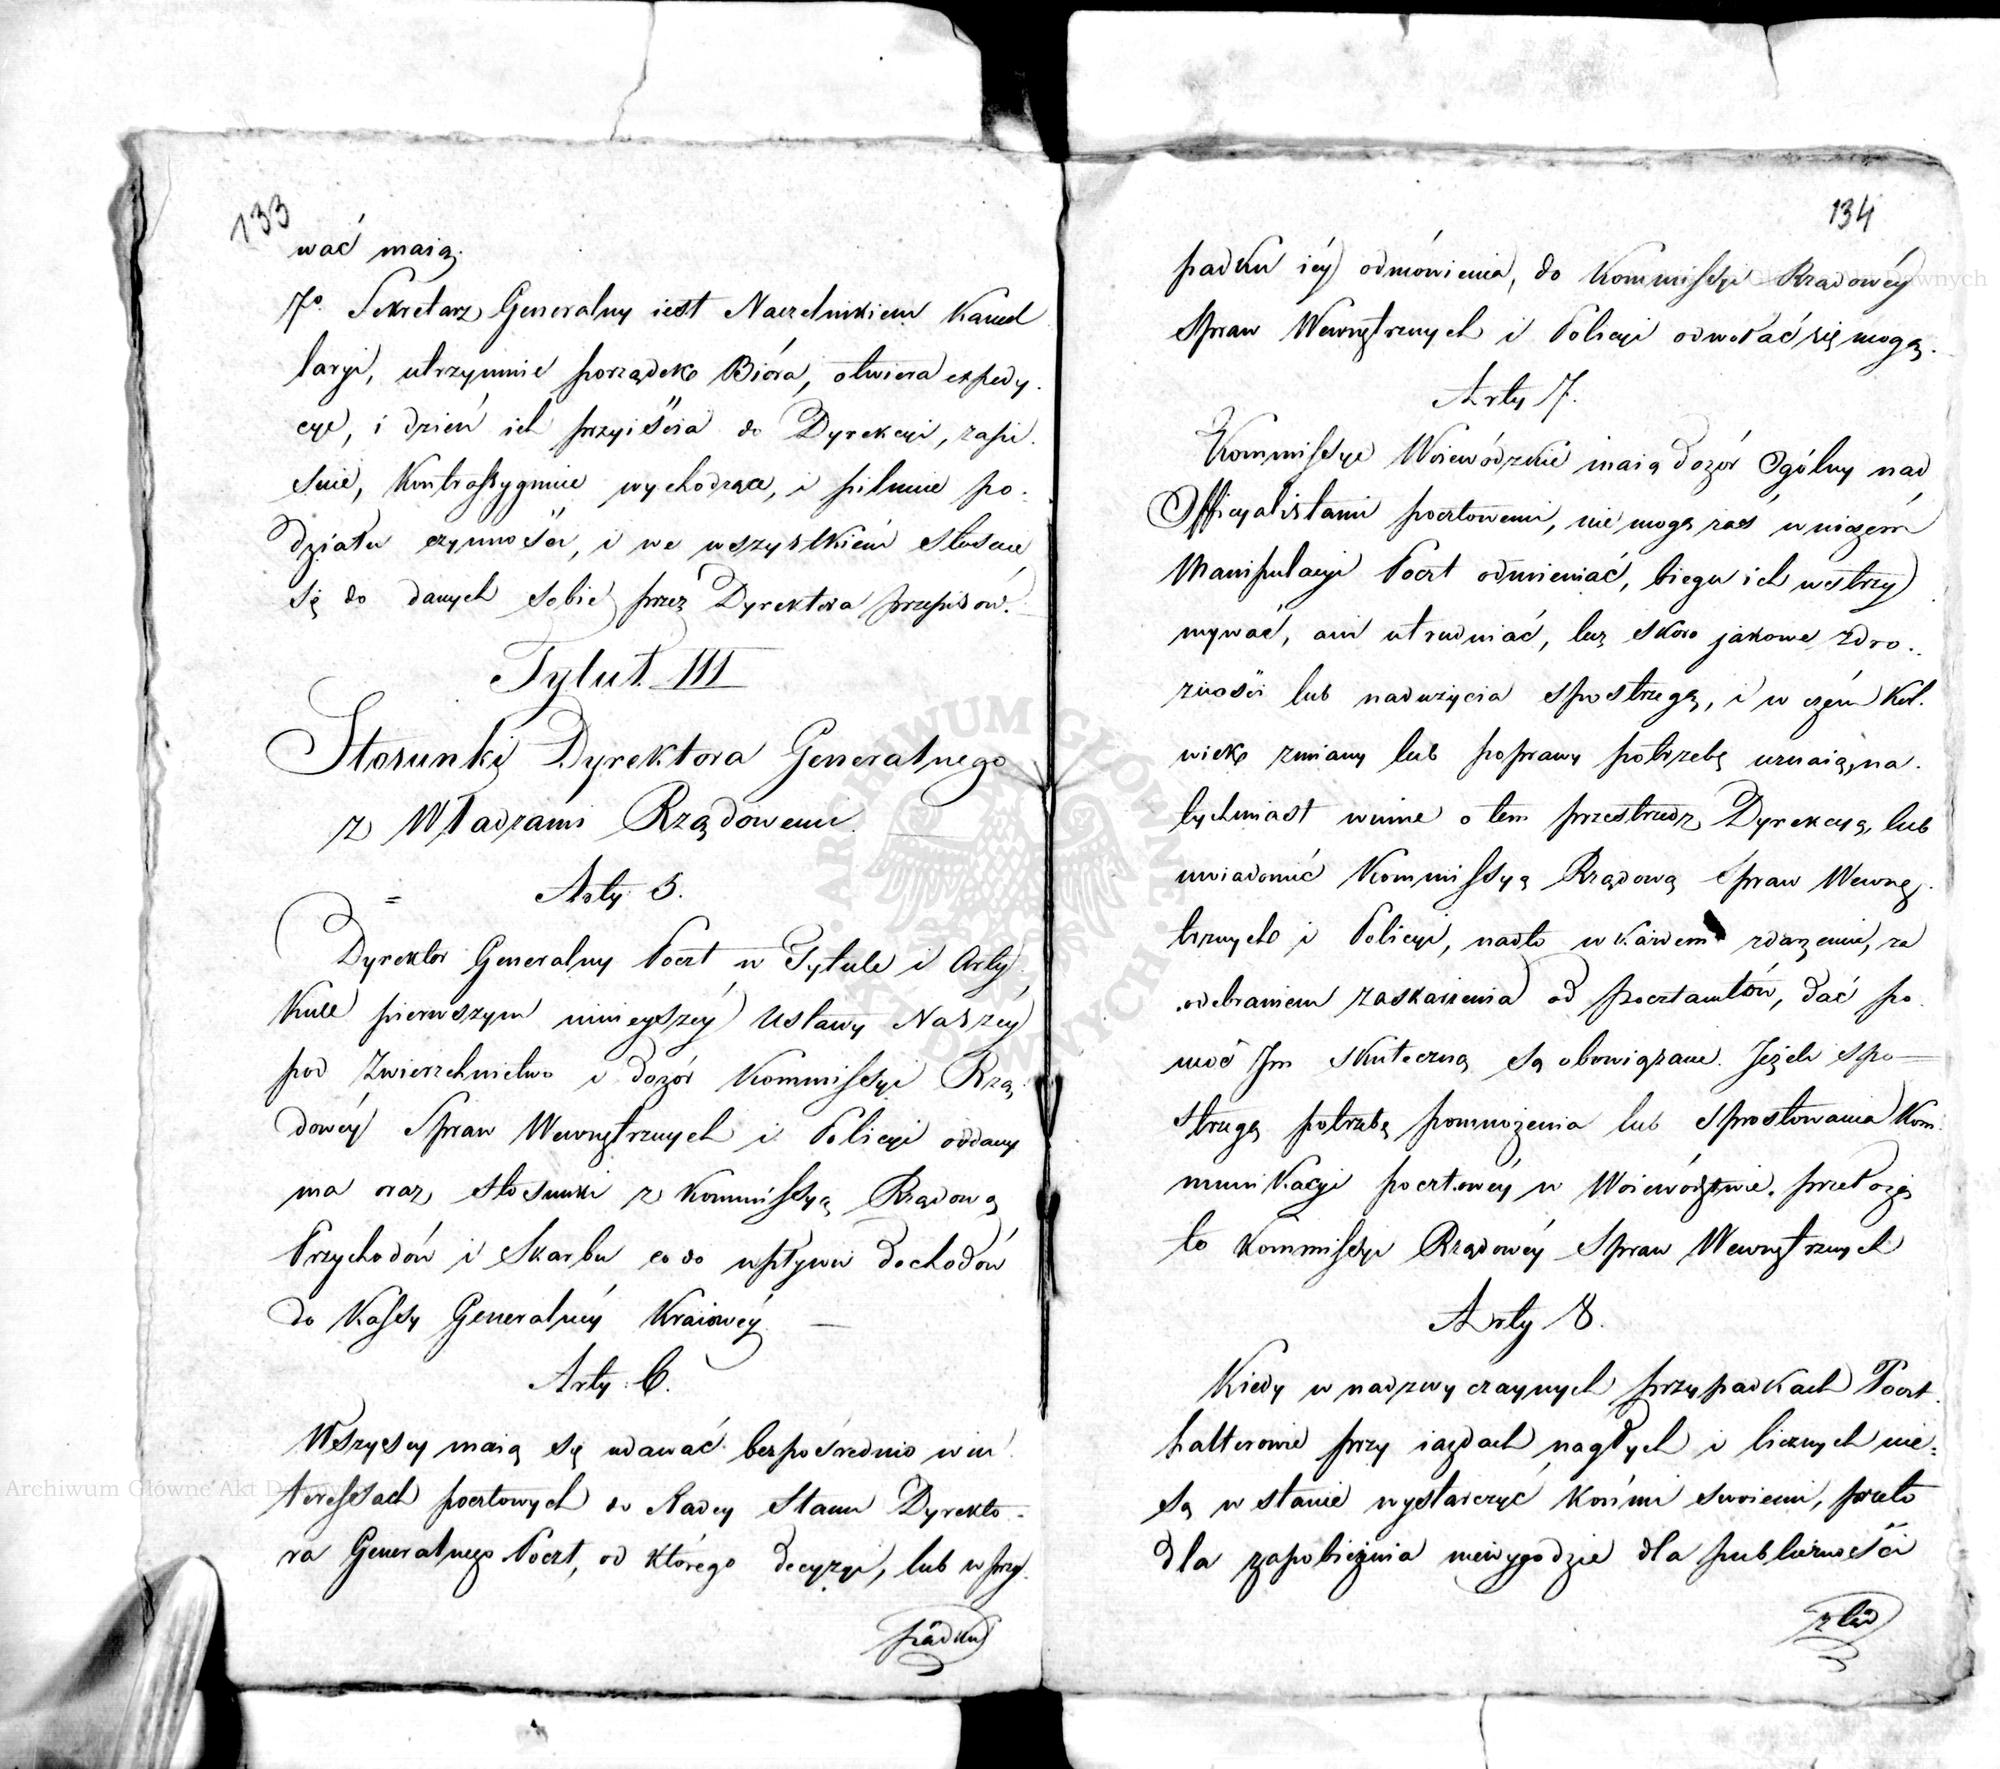 133
wać maią.
7º Sekretarz Generalny iest Naczelnikiem Kancel
laryi, utrzymuie porządek Bióra, otwiera expedy.
cye, i dzień ich przyiścia do Dyrekcyi, zapi.
suie, Kontrassygnuie wychodzące, i pilnuie po.
działu czynności, i we wszystkiem stosuie
się do danych sobie przez Dyrektora przepisów.
Tytuł III
Stosunki Dyrektora Generalnego
z Władzami Rządowemi.
Arty: 5.
Dyrektor Generalny Poczt w Tytule i Arty.
Kule pierwszym ninieyszéy Ustawy Naszéy
pod Zwierzchnictwo i dozór Kommissyi Rzą.
dowéy Spraw Wewnętrznych i Policyi oddany
ma oraz stosunki z Kommissyą Rządową
Przychodów i Skarbu co do wpływu dochodów
do Kassy Generalnéy Kraiowéy. —
Arty: 6.
Wszyscy maią się udawać bezpośrednio w in
teressach pocztowych do Radcy Stanu Dyrekto-
ra Generalnego Poczt, od którego decyzyi, lub w przy.
padku
134
padku iéy odmówienia, do Kommissyi Rządowéy
Spraw Wewnętrznych i Policyi odwołać się mogą.
Arty 7.
Kommissye Woiewódzkie maią dozór Ogólny nad
Officyalistami pocztowemi, nie mogą zaś w niczem
Manipulacyi Poczt odmieniać, biegu ich wstrzy
mywać, ani utrudniać, lecz skoro jakowe zdro..
żności lub nadużycia spostrzegą, i w czém Kol.
wiek zmiany lub poprawy potrzebę uznaią, na.
tychmiast winne o tem przestrzedz Dyrekcyą, lub
uwiadomić Kommissyą Rządową Spraw Wewnę.
trznych i Policyi, nadto w każdem zdarzeniu, za
odebraniem zaskarżenia od pocztamtów, dać po.
moc Im skuteczną są obowiązane. Jeżeli spo—
strzegą potrzebę pomnożenia lub sprostowania Kom.
munikacyi pocztowéy w Woiewództwie, przełożą
to Kommissyi Rządowéy Spraw Wewnętrznych
Arty 8.
Kiedy w nadzwyczaynych przypadkach Poczt.
halterowie przy iazdach nagłych i licznych nie=
są w stanie wystarczyć Końmi swoiemi, przeto
dla zapobieżenia niewygodzie dla publiczności
ztąd
Archiwum Główne Akt Dawnych
ARCHIWUM GŁÓWNE AKT DAWNYCH